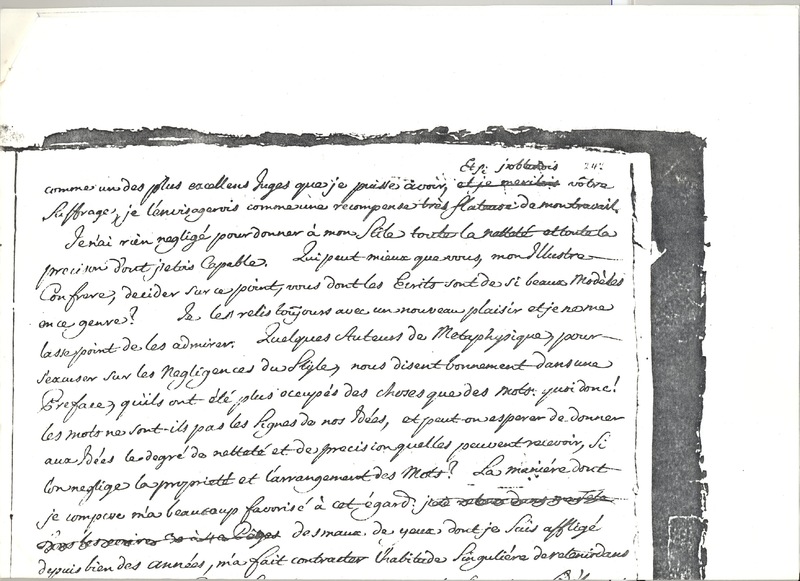 Et si j'obtenois 242
comme un des plus excellens Juges que je puisse avoir, et je meritois vôtre
Suffrage, je l'envisagerois comme une recompense très flateuse de mon travail.
Je n'ai rien negligé pour donner à mon Stile toute la netteté et toute la
precision dont j'etois Capable. Qui peut mieux que vous, mon Illustre
Confrere, decider sur ce point, vous dont les Ecrits sont de si beaux Modèles
en ce genre? Je les relis toûjours avec un nouveau plaisir et je ne me
lasse point de les admirer. Quelques Auteurs de Metaphysique, pour
s'excuser sur les Negligences du Style, nous disent bonnement dans une
Preface, qu'ils ont été plus occupés des choses que des mots. quoi donc!
les mots ne sont-ils pas les Signes de nos Idées, et peut on esperer de donner
aux Idées le degré de netteté et de precision qu'elles peuvent recevoir, Si
l'on neglige la proprieté et l'arrangement des Mots? La maniére dont
je compose m'a beaucoup favorisé à cet égard. je
des maux de yeux dont je suis affligé
depuis bien des années, m'a fait contracter l'habitude Singuliére de retenir dans